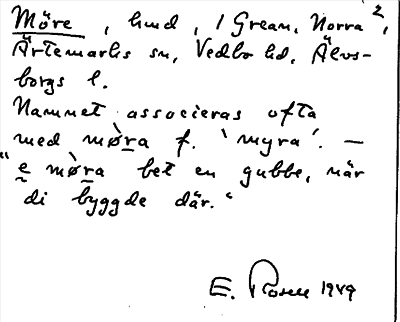 Möre, hmd, i Grean, Norra²,
Ärtemarks sn, Vedbo hd, Älvs-
borgs l.
Namnet associeras ofta
med mø̀ra f. ‘myra’. —
"e mø̀ra bet en gubbe, när
di byggde där."
E. Rosell 1949